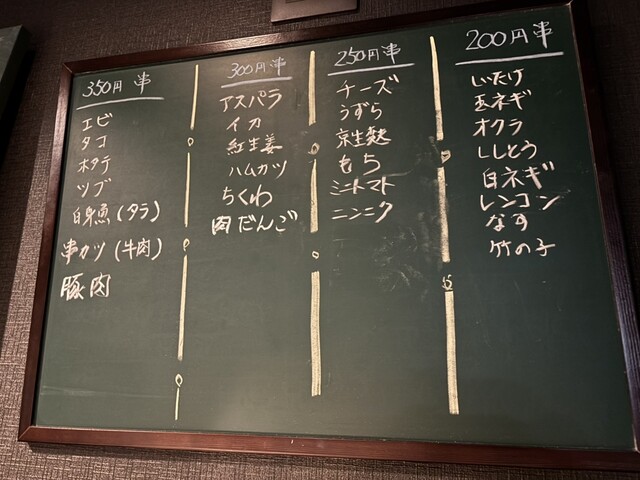 350円 串
エビ
タコ
ホタテ
ツブ
白身魚(タラ)
串カツ(牛肉)
豚肉
300円 串
アスパラ
イカ
紅生姜
ハムカツ
ちくわ
肉だんご
250円 串
チーズ
うずら
京生麩
もち
ミニトマト
ニンニク
200円 串
しいたけ
玉ネギ
オクラ
ししとう
白ネギ
レンコン
なす
竹の子